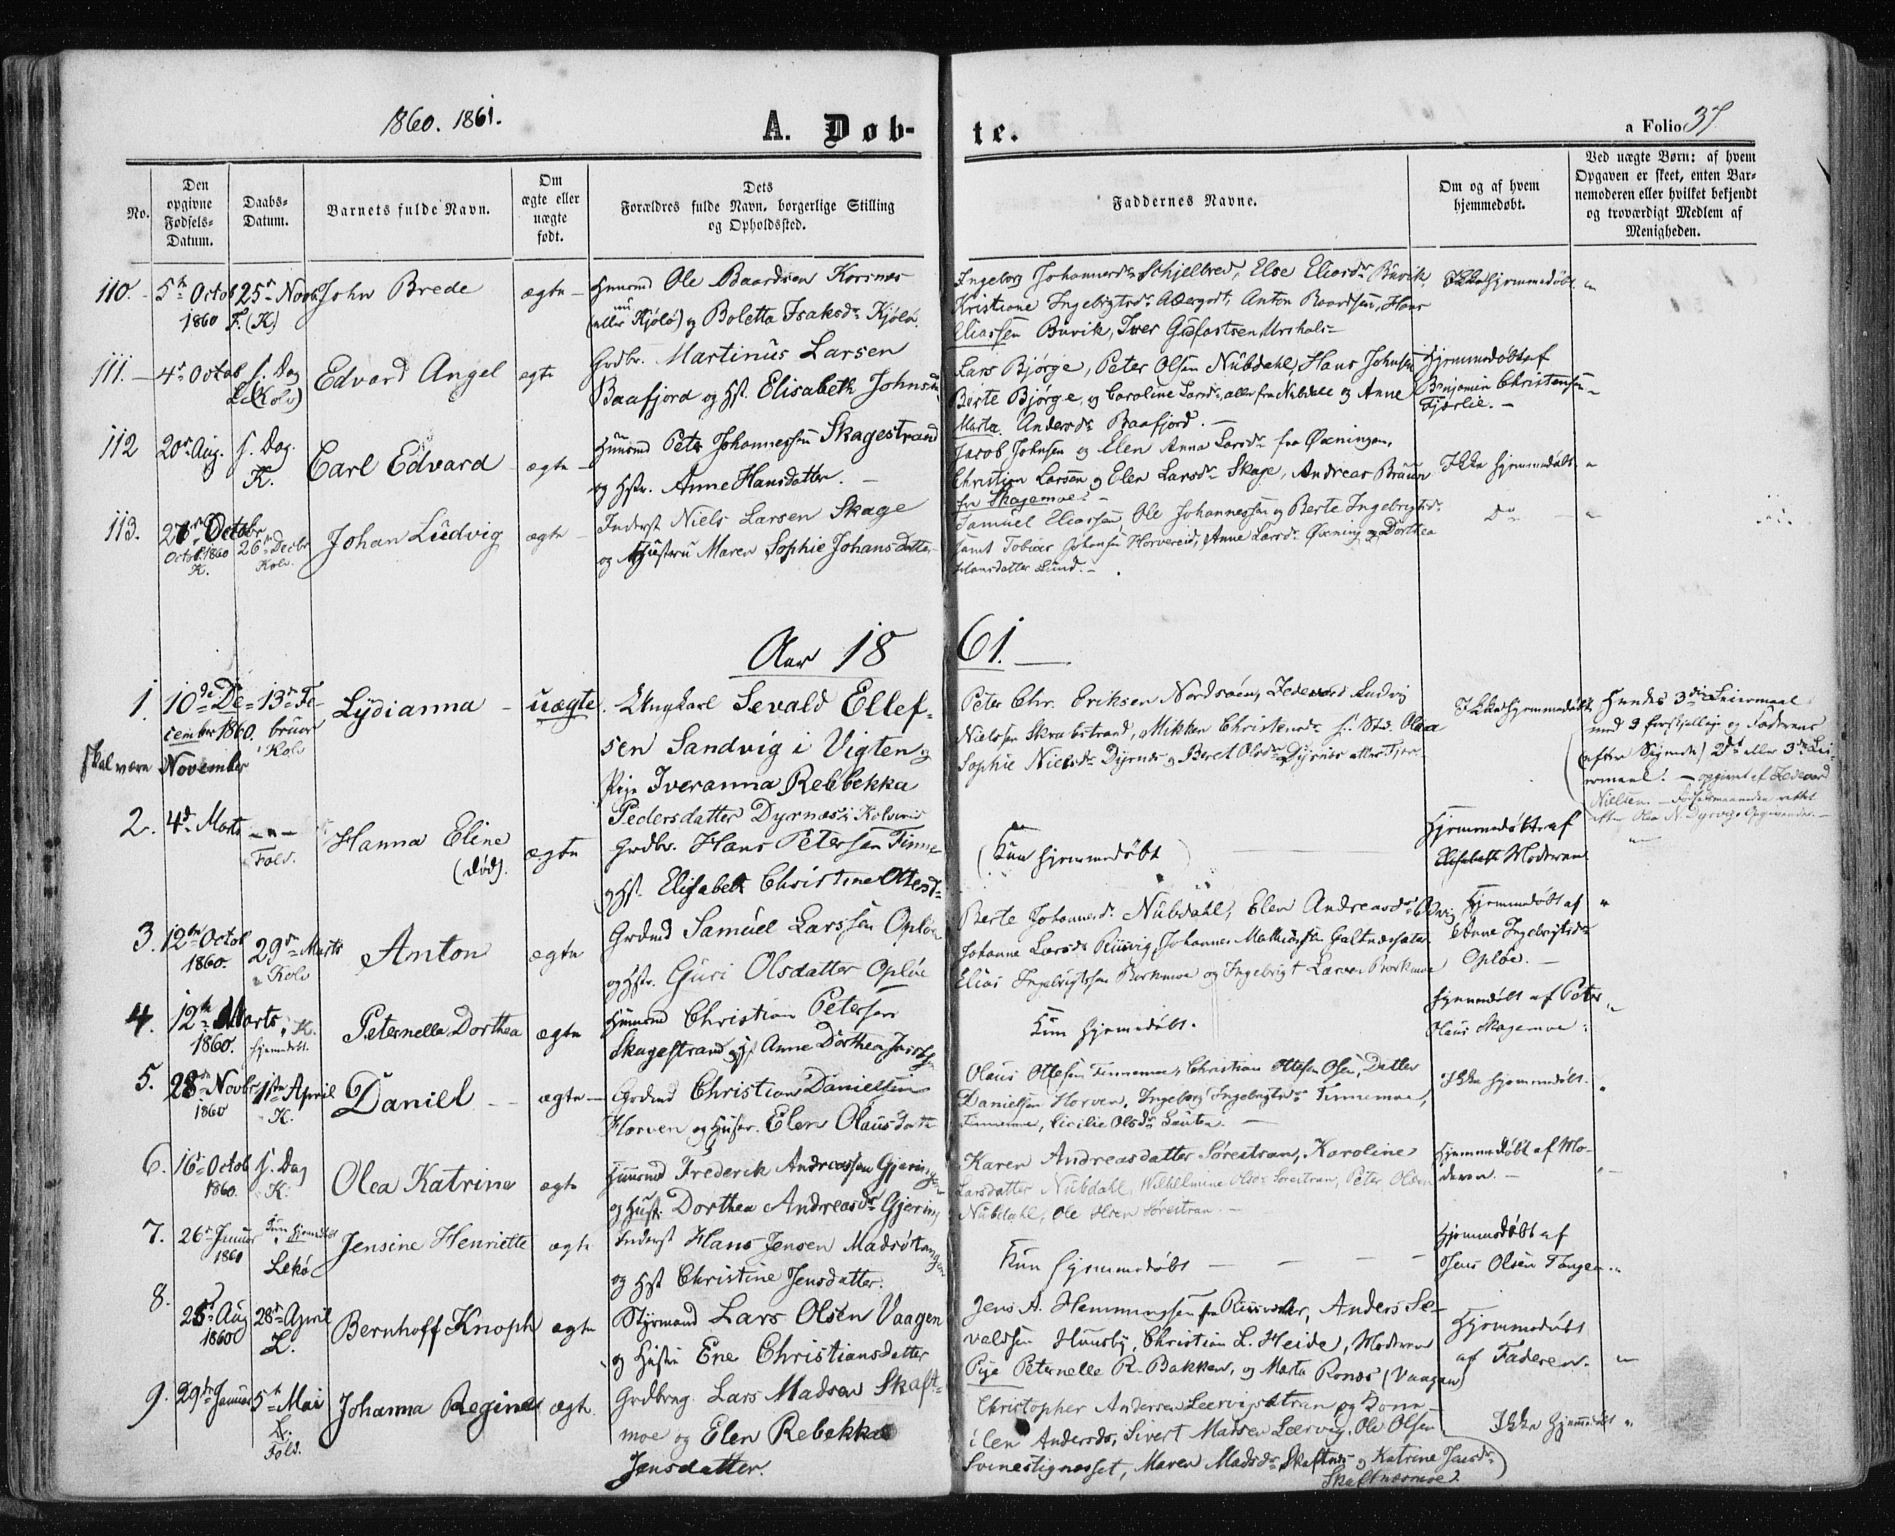 1860. 1861.
A. Døb-
te.
a Folio 37
No.
Den opgivne Fødsels-Datum.
Daabs-Datum.
Barnets fulde Navn.
Om ægte eller uægte født.
Dets Forældres fulde Navn, borgerlige Stilling og Opholdssted.
Faddernes Navne.
Om og af hvem hjemmedøbt.
Ved uægte Børn: af hvem Opgaven er skeet, enten Barnemoderen eller hvilket bekjendt og troværdigt Medlem af Menigheden.
110. 5te Octob 1860 25de Novbr F. (K) John Brede ægte
Huusmd Ole Baardsen Korsnæs
(eller Kjølø) og Boletta Isaksdr Kjølø.
Ingeborg Johannesdr Schjelbred, Else Eliasdr Buvik,
Kristiane Ingebrigtsdr Abergort, Anton Baardsen, Hans
Eliassen Buvik, Iver
Ikke hjemmedøbt
111. 4de Octob s. Dag (Kolv) Edvard Angel ægte
Grdbr. Martinus Larsen
Baafjord og Hst. Elisabeth Johnsdr
Lars Bjørge, Peter Olsen Nubdahl, Hans Johnsen
Berte Bjørge, og Caroline Larsdr, alle fra Nubdahl og Anne
Marta Andersdr Baafjord.
Hjemmedøbt af
Benjamin Christensen
Fjærlie.
112 20de Aug. s. Dag. K. Carl Edvard ægte
Huusmd Peter Johannessen Skagestrand
og Hstr. Anne Hansdatter.
Jacob Johnsen og Elen Anna Larsdr fra Øxningen,
Christian Larsen og Elen Larsdr Skage, Andreas Bruun
fra Skagemoe.
Ikke hjemmedøbt
113. 27de Octobr Octob 1860 K. 26de Decbr Kolv. Johan Ludvig ægte
Inderst Niels Larsen Skage
og Hustru Maren Sophie Johansdatter
Samuel Eliassen, Ole Johannessen og Berte Ingebrigtsdr.
samt Tobias Johansen Horvereid, Anne Larsdr Øxning og Dorthea
Hansdatter Lund.
Do
Aar 18 61.
1. 10de December 1860. 13de Februar Kolv Lydianna uægte
Ungkarl Sevald Ellef-
sen Sandvig i Vigten og
Pige Iveranna Rebbekka
Pedersdatter Dyrnæs i Kolvereid
skal være November
Peter Chr. Eriksen Nordsøen, Zedevard Ludvig
Nielsen Skrabstrand, Mikken Christensdr s. Std. Olea
Sophie Nielsdr Dyrnæs og Beret Olsdr Dyrnæs
Ikke hjemmedøbt
Hendes 3die Leiermaal
med 3 forskjellige og Faderens
(efter Sigende) 2det eller 3die Lei-
ermaal. — opgivet af Zedevard
Nielsen. — Fødselsmaaneden rettet
2. 4de Marts Fold. Hanna Eline (død). ægte
Grdbr. Hans Petersen Finne
og Hst. Elisabeth Christine Ottesdr
(Kun hjemmedøbt)
Hjemmedøbt af
Elisabeth Moderen
3. 12te Octob 1860. 29de Marts Kolv Anton ægte
Grdmd Samuel Larssen Opløe
og Hstr. Guri Olsdatter Opløe
Berte Johannesdr Nubdahl, Elen Andreasdr
Johanne Larsdr Ruusvig, Johannes Mathiassen Galtnæsaten
Elias Ingebrigtsen Borkmoe og Ingebrigt Larsen Borkmoe
Hjemmedøbt af
Anne Ingebrigtsdr
Opløe.
4. 12te Marts 1860. K. hjemmedøbt. Peternella Dorthea ægte
Huusmd Christian Petersen
Skagestrand og Hst Anne Dorthea
Kun hjemmedøbt.
hjemmedøbt af Peter
Olaus Skagemoe
5. 28de Novbr 1860 1ste April K. Daniel ægte
Grdmd Christian Danielsen
Horven og Hustr. Elen Olausdatter
Olaus Ottesen Finnemoe, Christian Ottesen Osen, Detler
Danielsen Horven, Ingeborg Ingebrigtsdr Finnemoe,
Finnemoe, Cicilie Olsdr
Ikke hjemmedøbt.
6. 16de Octob 1860. s. Dag K. Olea Katrine ægte
Huusmd Frederik Andreassen Gjeringen
og Hustr. Dorthea Andreasdr Gjering
Karen Andreasdatter Sørestran, Karoline
Larsdatter Nubdahl, Wilhelmine Olsdr Sørestran, Peter Olsen
Nubdahl, Ole Sørestran.
Hjemmedøbt af Mo-
deren.
7. 26de Januar 1861 Kun hjemmedøbt Lekø Jensine Henriette ægte
Inderst Hans Jensen Madsøtangen
og Hst Christine Jensdatter.
Kun hjemmedøbt
Hjemmedøbt af
Jens Olsen Tangen
8. 25de Aug 1860 28de April L. Bernhoff Knoph ægte
Styrmand Lars Olsen Vaagen
og Hustru Ene Christiansdatter
Jens A. Hemmingsen fra, Anders Se-
valdsen Huusby, Christian L. Heide, Moderen
Pige Peternelle R. Bakken, og Marta Ronæs (Vaagan)
Hjemmedøbt
af Faderen.
9. 29de Januar 5te Mai L. Fold. Johanna Regine ægte
Grdbrug. Lars Madsen Skaft-
moe og Elen Rebekka
Jensdatter.
Christopher Andersen Leervigstran og Kone
Elen Andersdr, Sivert Madsen Leervig, Ole Olsen
Svinestignæsset, Maren Madsdr Skaftnæs og Katrine Jensdr
Skaftnæsmoe.
Ikke hjemmedøbt